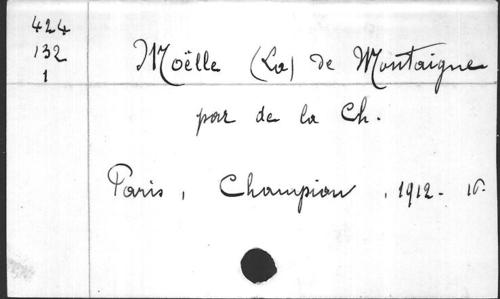 424
132
1
Moëlle (La) de Montaigne
par de la Ch.
Paris, Champion, 1912. 16.